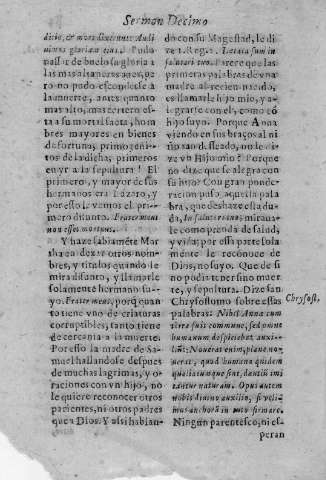 Sermon Decimo
ditio, & mors dixerunt: Audi
uimus gloriam eius. Pudo
nassar de buelo su gloria a
las mas assinteres ages, pe
ro no pudo esconderse a
la muerte, antes quanto
mas alto, mas certero esta
ua su mortal saeta, hom
bres mayores en bienes
de fortuna, primogeni-
tos de la dicha, primeros
en yr a la sepultura! El
primero, y mayor de sus
hermanos era Lazaro, y
por esso le vemos el pri-
mero difunto. Frater meus
non esset mortuus.
Y haze sabiaméte Mar
tha en dexar otros nom-
bres, y titulos quando le
mira difunto, y llamarle
solamente hermano su-
yo. Frater meus, porq quan
to tiene vno de criaturas
corruptibles, tanto tiene
de cercania a la muerte.
Por esso la madre de Sa-
muel hallandose despues
de muchas lagrimas, y o-
raciones con vn hijo, no
le quiere reconocer otros
parientes, ni otros padres
que a Dios. Y assi hablan-
do con su Magestad, le di
ze 1. Reg. 2. Lætata sum in
salutari tuo. Parece que las
primeras palabras de vna
madre al recien nacido,
es llamarle hijo mio, y a-
legrarse con el, como có
hijo suyo. Porque Anna
viendo en sus braços al ni
ño tan desseado, no le di-
ze vn Hijo mio? Porque
no dize que se alegra con
su hijo? Con gran ponde-
racion puso aquella pala
bra, que deshaze esta du-
da, In salutari tuo; miraua-
le como prenda de salud,
y vida; por essa parte sola
mente le reconoce de
Dios, no suyo. Que de si
no podia temer sino muer
te, y sepoltura. Dize san
Chrysostomo sobre essas
palabras: Nihil Anna cum
viro suis commune, sed omne
humanum despiciebat auxi-
lium: Nouerat enim, plane no-
uerat, quod humana quidem
qualiacumque sint, dantis imi
tantur naturam. Opus autem
nobis diuino auxilio, si veli-
mus anchorā in tuto firmare.
Ningun parentesco, ni es-
peran
Chrysost.